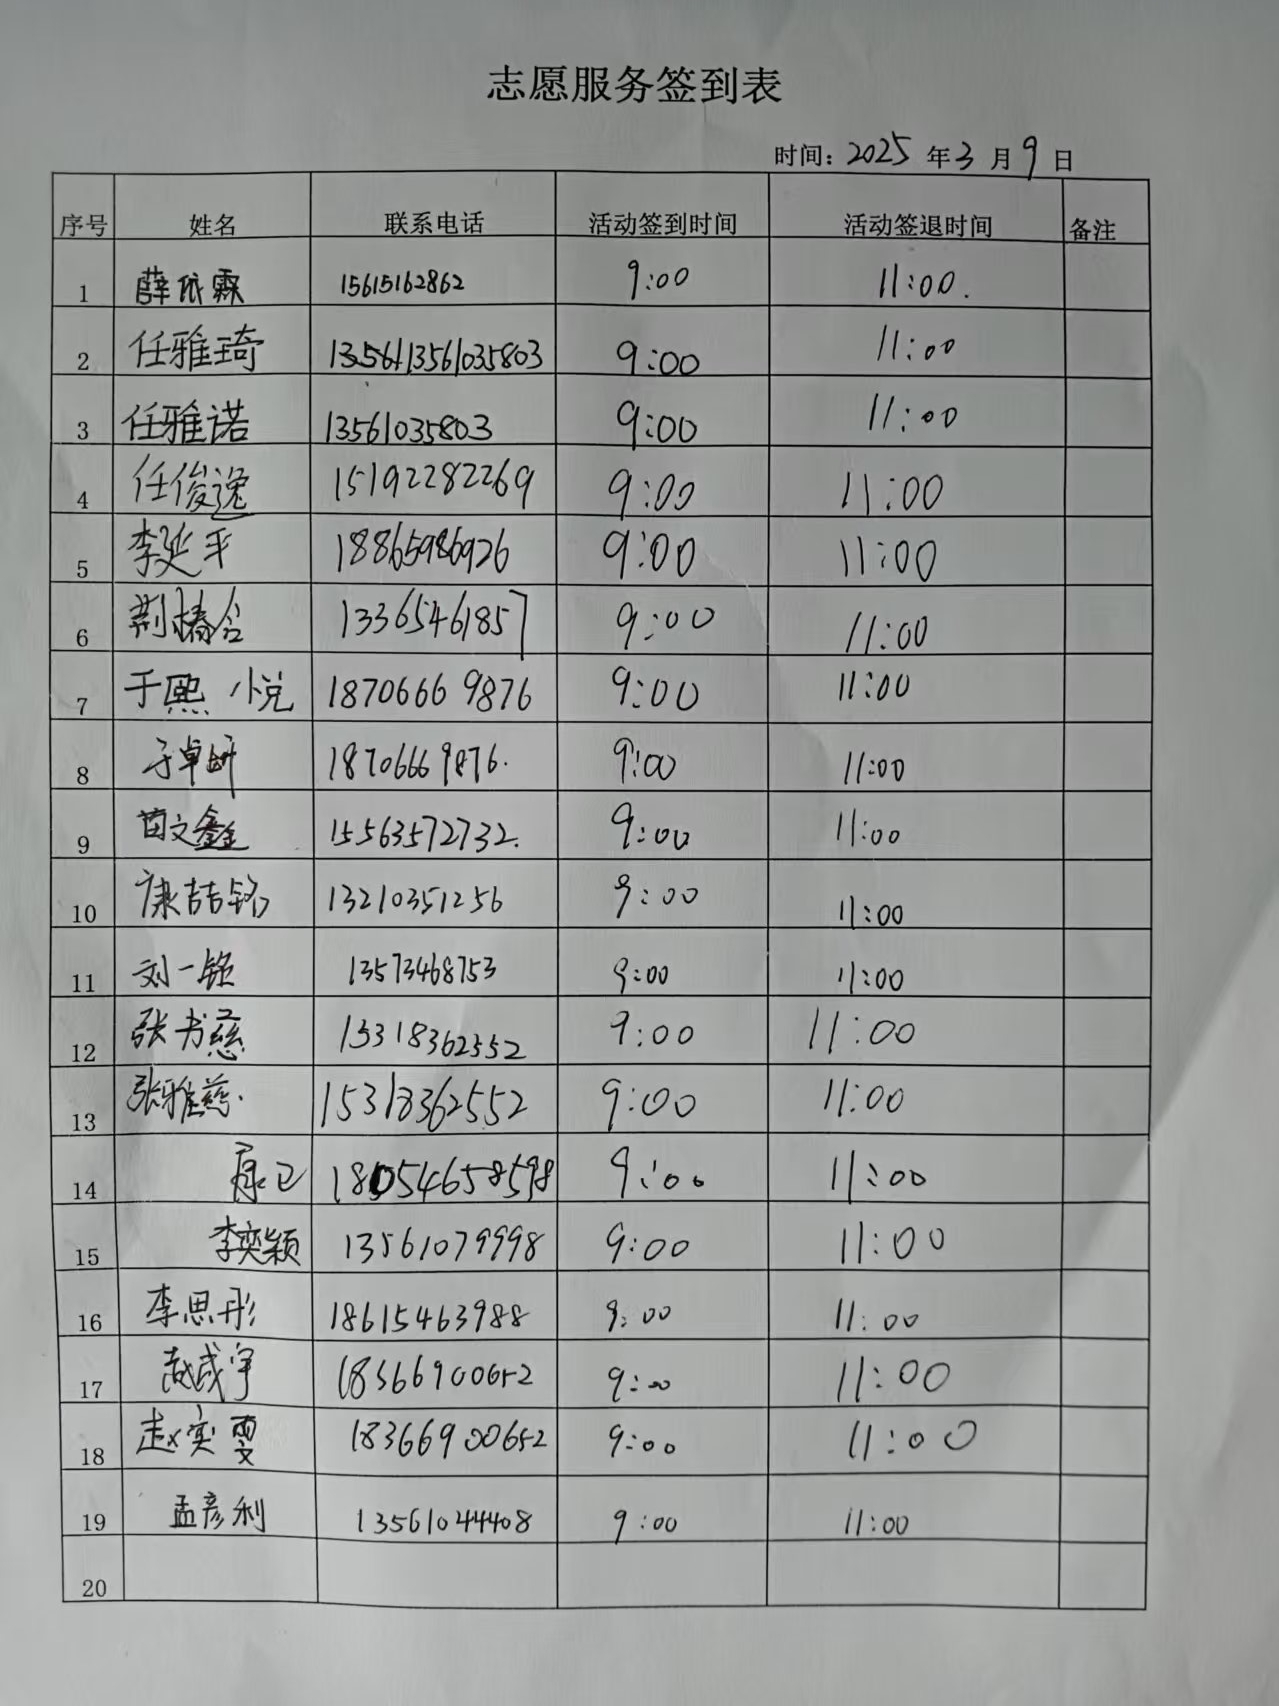 志愿服务签到表
时间: 2025 年 3 月 9 日
序号 姓名 联系电话 活动签到时间 活动签退时间 备注
1 薛依霖 15615162862 9:00 11:00.
2 任雅琦 1356113561035803 9:00 11:00
3 任雅诺 13561035803 9:00 11:00
4 任俊逸 15192282269 9:00 11:00
5 李延平 18865986926 9:00 11:00
6 荆椿含 13365461857 9:00 11:00
7 于熙悦 18706669876 9:00 11:00
8 于卓妍 18706669876. 9:00 11:00
9 苗文鑫 15563572732. 9:00 11:00
10 康喆铭 13210351256 9:00 11:00
11 刘一铭 13573468753 9:00 11:00
12 张书慈 15318362552 9:00 11:00
13 张雅慈. 15318362552 9:00 11:00
14 康 18054658598 9:00 11:00
15 李奕颖 13561079998 9:00 11:00
16 李思彤 18615463988 9:00 11:00
17 赵成宇 18366900652 9:00 11:00
18 赵奕雯 18366900652 9:00 11:00
19 孟彦利 13561044408 9:00 11:00
20